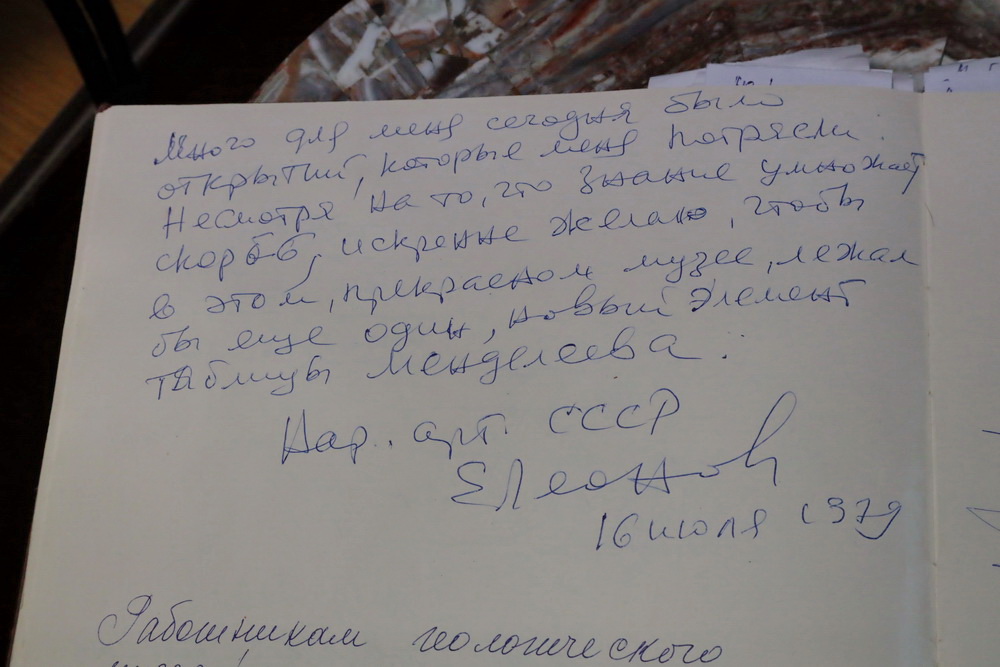 Много для меня сегодня было
открытий, которые меня потрясли.
Несмотря на то, что знание умножает
скорбь, искренне желаю, чтобы
в этом, прекрасном музее, лежал
бы еще один, новый элемент
таблицы Менделеева.
Нар. арт. СССР
ЕЛеонов
16 июля 1979
Работникам геологического